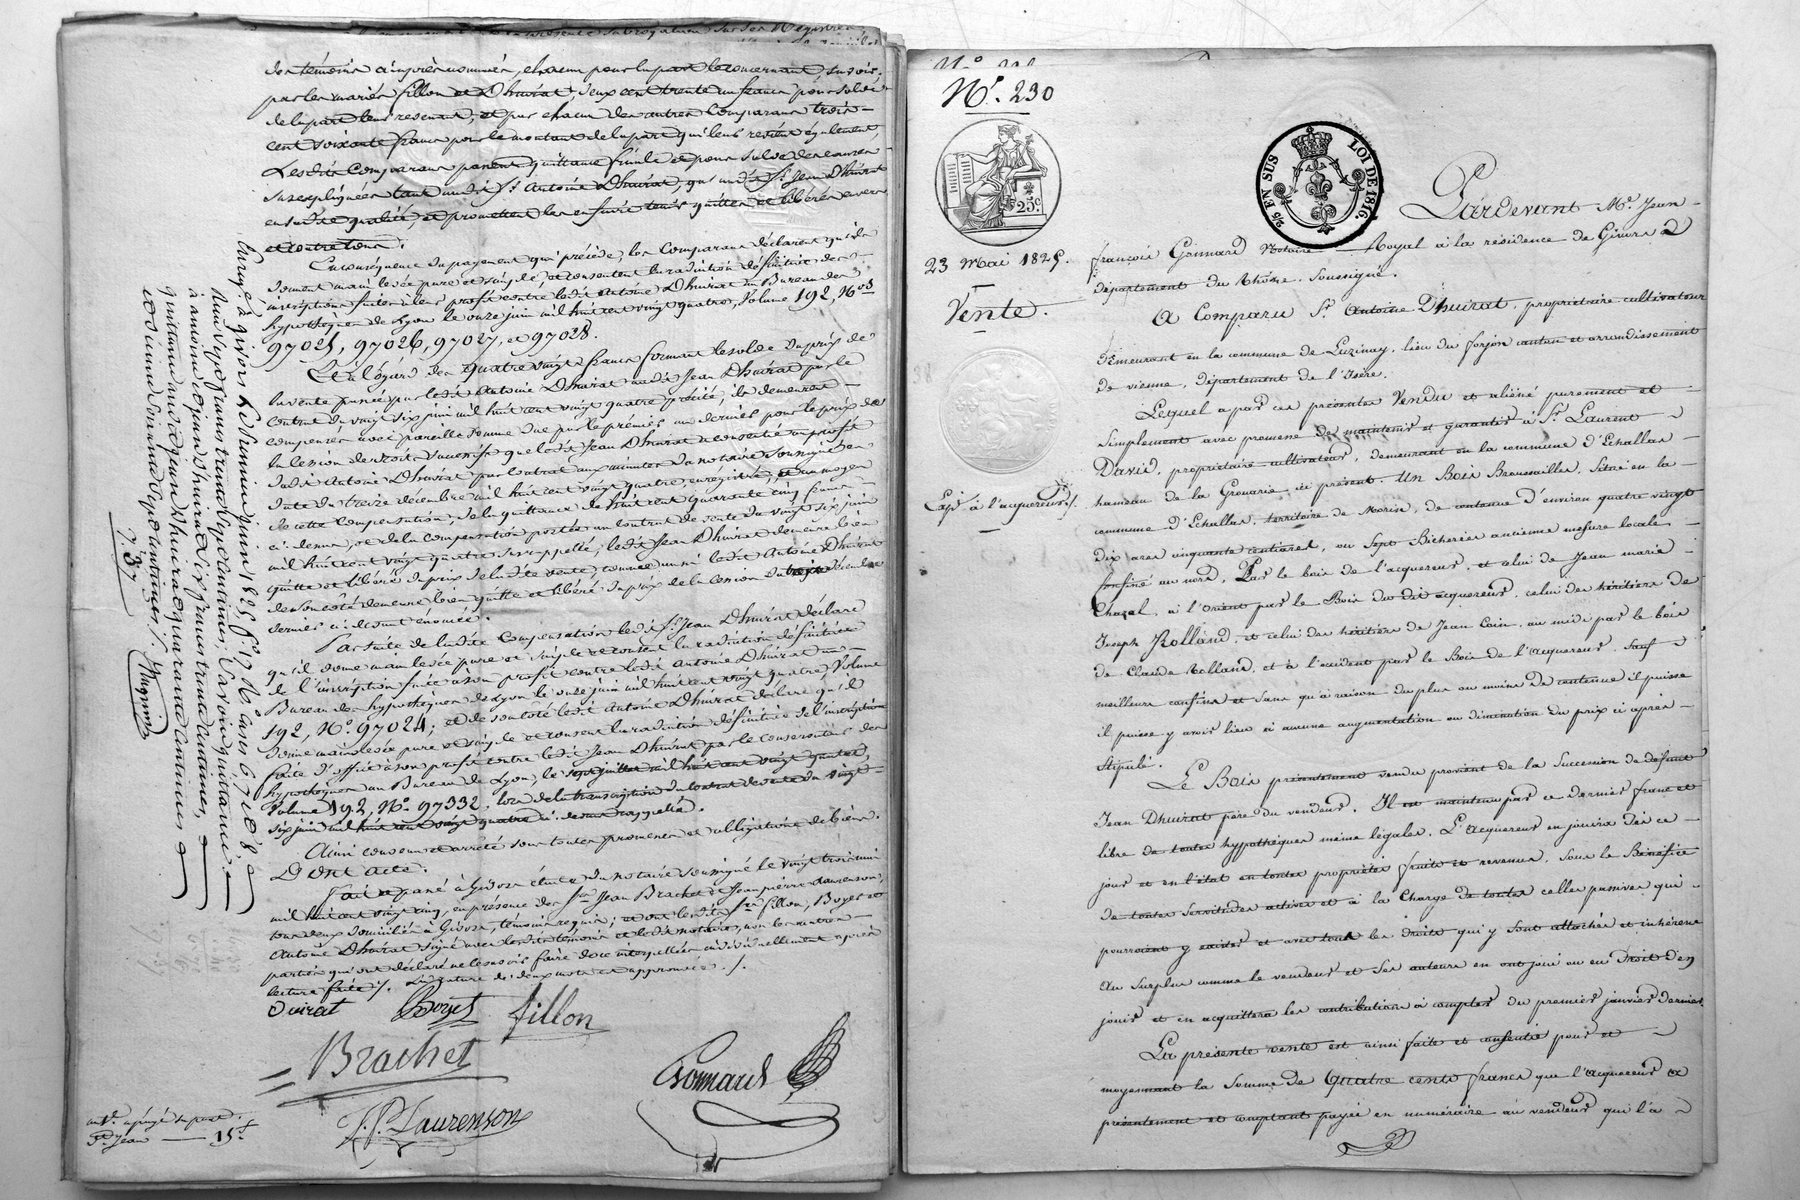 des témoins ci après nommés, chacun pour la part le concernant, savoir;
par les mariés fillon et Dhuirat, deux cent trente un francs pour solde
de la part leur revenant, et par chacun des autres Comparans trois
cent soixante francs pour le montant de la part qui leur revient également,
Lesdits Comparans passent quittance finale et pour solde des causes
sus expliquées tant audit Sr. Antoine Dhuirat, qu'audit Sr. Jean Dhuirat
en sadite qualité, et promettent les en faire tenir quittes et libérés envers
et contre tous.
En conséquence du payement qui précède, les Comparans déclarent qu'ils
donnent main levée pure et simple, et consentent la radiation définitive des
inscriptions faites à leur profit contre ledit Antoine Dhuirat au Bureau des
hypothèques de Lyon le onze juin mil huit cent vingt quatre, Volume 192, Nos
97025, 97026, 97027, et 97028.
Et à l'égard des quatre vingt francs formant le solde du prix de
la vente passée par ledit Antoine Dhuirat audit Jean Dhuirat par le
contrat du vingt six juin mil huit cent vingt quatre précité, ils demeurent
compensés avec pareille somme due par le premier au dernier pour le prix de
la cession de droits successifs que ledit Jean Dhuirat a consentie au profit
dudit Antoine Dhuirat par contrat aux minutes du notaire soussigné en
date du treize décembre mil huit cent vingt quatre, enregistré, et au moyen
de cette compensation, de la quittance de huit cent quarante cinq francs
ci dessus, et de la compensation portée au contrat de vente du vingt six juin
mil huit cent vingt quatre sus rappellé, ledit Jean Dhuirat demeure bien
quitte et libéré du prix de ladite vente, comme aussi ledit Antoine Dhuirat
de son côté demeure bien quitte et libéré du prix de la cession du treize décembre
dernier ci dessus énoncée.
Par suite de ladite Compensation ledit Sr. Jean Dhuirat déclare
qu'il donne main levée pure et simple et consent la radiation définitive
de l'inscription faite à son profit contre ledit Antoine Dhuirat au
Bureau des hypothèques de Lyon le onze juin mil huit cent vingt quatre, Volume
192, No. 97024; et de son côté ledit Antoine Dhuirat déclare qu'il
donne main levée pure et simple et consent la radiation définitive de l'inscription
faite d'office à son profit contre ledit Jean Dhuirat par le conservateur des
hypothèques au Bureau de Lyon, le sept juillet mil huit cent vingt quatre,
Volume 192, No. 97332, lors de la transcription du contrat de vente du vingt
six juin mil huit cent vingt quatre ci dessus rappellé.
Ainsi convenu et arrêté sous toutes promesses et obligations de biens.
Dont acte.
Fait et passé à Givors étude du notaire soussigné le vingt trois mai
mil huit cent vingt cinq, en présence des Srs. Jean Brachet et Jean pierre Laurenson,
tous deux domiciliés à Givors, témoins requis; et ont lesdits Srs. fillon, Boyet et
Antoine Dhuirat signé avec lesdits témoins et ledit notaire, non les autres
parties qui ont déclaré ne le savoir faire de ce interpellées individuellement après
lecture faite ./. La rature de deux mots est approuvée ./.
Duirat Boyet fillon
Brachet
J. P. Laurenson
Goimard
Sr. Jean — 15f
Enregé. à givors le deux juin 1825 fo. 17 Vo. cases 6 7 et 8
737
No. 230
25c.
25 EN SUS LOI DE 1816.
23 Mai 1825.
Vente.
Expé. à l'acquereur ./.
Pardevant Me. Jean
françois Goimard Notaire Royal à la résidence de Givors
département du Rhône, soussigné.
A Comparu Sr. Antoine Dhuirat, propriétaire cultivateur
demeurant en la commune de Luzinay, lieu du forjon canton et arrondissement
de vienne, département de l'Isère.
Lequel a par ces présentes Vendu et aliéné purement et
simplement avec promesse de maintenir et garantir à Sr. Laurent
David, propriétaire cultivateur, demeurant en la commune d'Echallas
hameau de la Grouarie, ci présent. Un Bois Broussailles, situé en la
commune d'Echallas, territoire de Morin, de contenue d'environ quatre vingt
dix ares cinquante centiares, ou sept Bicherées ancienne mesure locale
confiné au nord, Par le bois de l'acquereur, et celui de Jean marie
Chazal, à l'orient par le Bois du dit acquereur, celui des héritiers de
Joseph Rolland, et celui des héritiers de Jean Coin, au midi par le bois
de Claude Rolland, et à l'occident par le Bois de l'acquereur, sauf
meilleurs confins et sans qu'à raison du plus ou moins de contenue il puisse
il puisse y avoir lieu à aucune augmentation ou diminution du prix ci après
stipulé.
Le Bois présentement vendu provient de la succession de défunt
Jean Dhuirat père du vendeur. Il est maintenu par ce dernier franc et
libre de toutes hypothèques même légales. L'acquereur en jouira dès ce
jour et en l'état en toutes propriétés fruits et revenus, sous le Bénéfice
de toutes servitudes actives et à la Charge de toutes celles passives qui
pourroient y exister et avec tous les droits qui y sont attachés et inhérens
au surplus comme le vendeur et ses auteurs en ont joui ou eu Droit d'en
jouir et en acquittera les contributions à compter du premier janvier dernier.
La présente vente est ainsi faite et consentie pour et
moyennant la somme de Quatre cents francs que l'acquereur a
présentement et comptant payée en numéraire au vendeur qui l'a